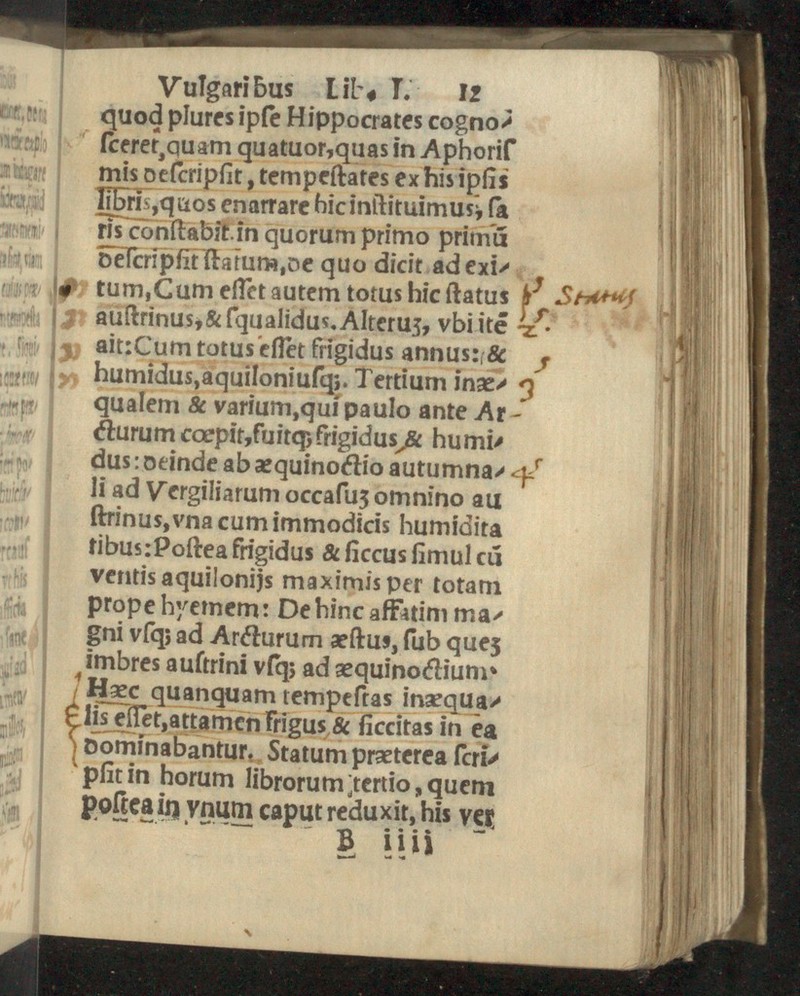 Vulgaribus Lib. I. 12
quod plures ipſe Hippocrates cogno⸗
ſceret, quam quatuor, quas in Aphoriſ
mis deſcripſit, tempeſtates ex his ipſis
libris, quos enarrare hic inſtituimus, ſa
tis conſtabit. in quorum primo primū
deſcripſit ſtatum, de quo dicit ad exi⸗
tum, Cum eſſet autem totus hic ſtatus
Status
auſtrinus, & ſqualidus. Alteruʒ, vbi itē
ait: Cum totus eſſet frigidus annus: &
humidus, aquiloniuſqꝫ. Tertium inæ⸗
qualem & varium, qui paulo ante Ar-
cturum cœpit, fuitqꝫ frigidus, & humi⸗
dus: deinde ab æquinoctio autumna⸗
li ad Vergiliarum occaſuʒ omnino au
ſtrinus, vna cum immodicis humidita
tibus: Poſtea frigidus & ſiccus ſimul cū
ventis aquilonijs maximis per totam
prope hyemem: Dehinc affatim ma⸗
gni vſqꝫ ad Arcturum æſtus, ſub queʒ
imbres auſtrini vſqꝫ ad æquinoctium.
Hæc quanquam tempeſtas inæqua⸗
lis eſſet, attamen frigus & ſiccitas in ea
dominabantur. Statum præterea ſcri⸗
pſit in horum librorum tertio, quem
poſtea in vnum caput reduxit, his ver
B iiii